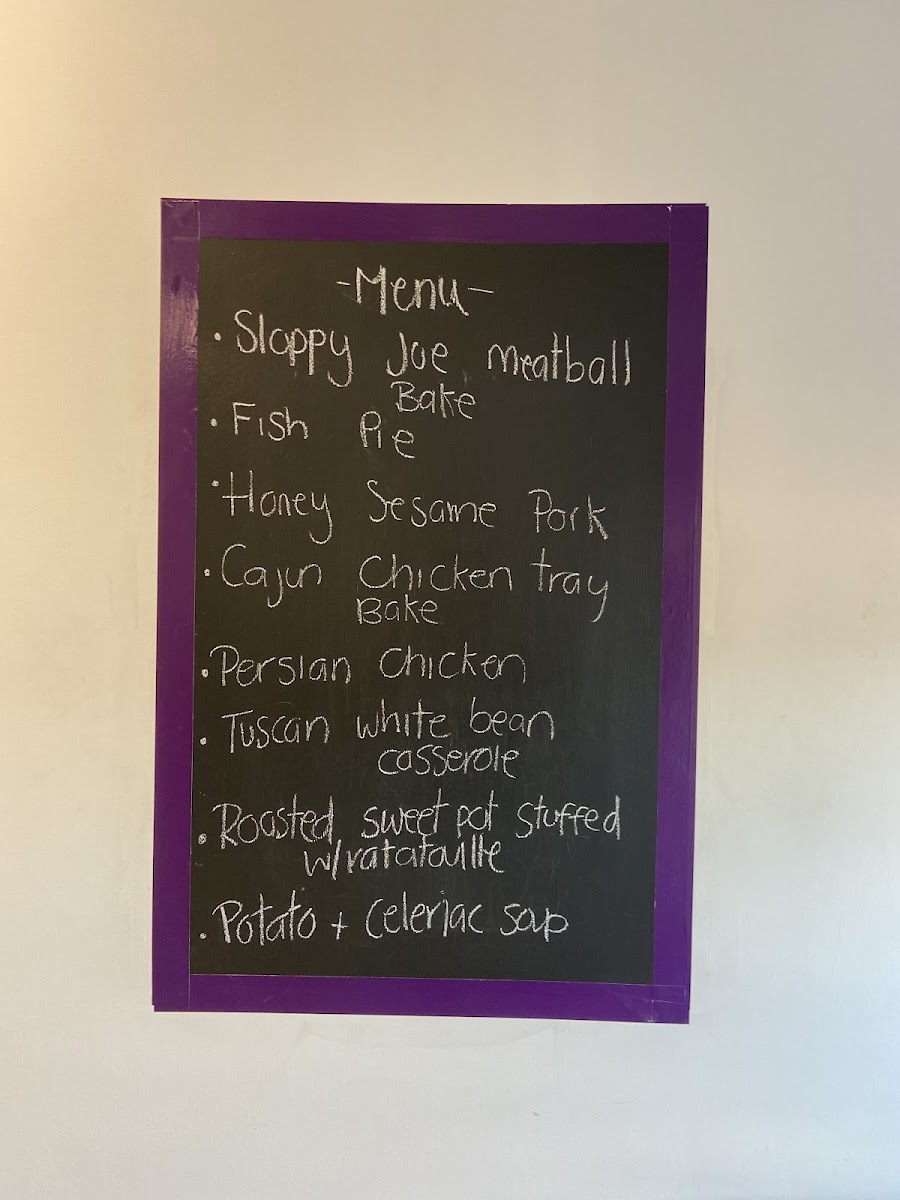 -Menu-
• Sloppy Joe Meatball
Bake
• Fish Pie
• Honey Sesame Pork
• Cajun Chicken tray
Bake
• Persian Chicken
• Tuscan white bean
casserole
• Roasted sweet pot stuffed
w/ratatouille
• Potato + Celeriac soup